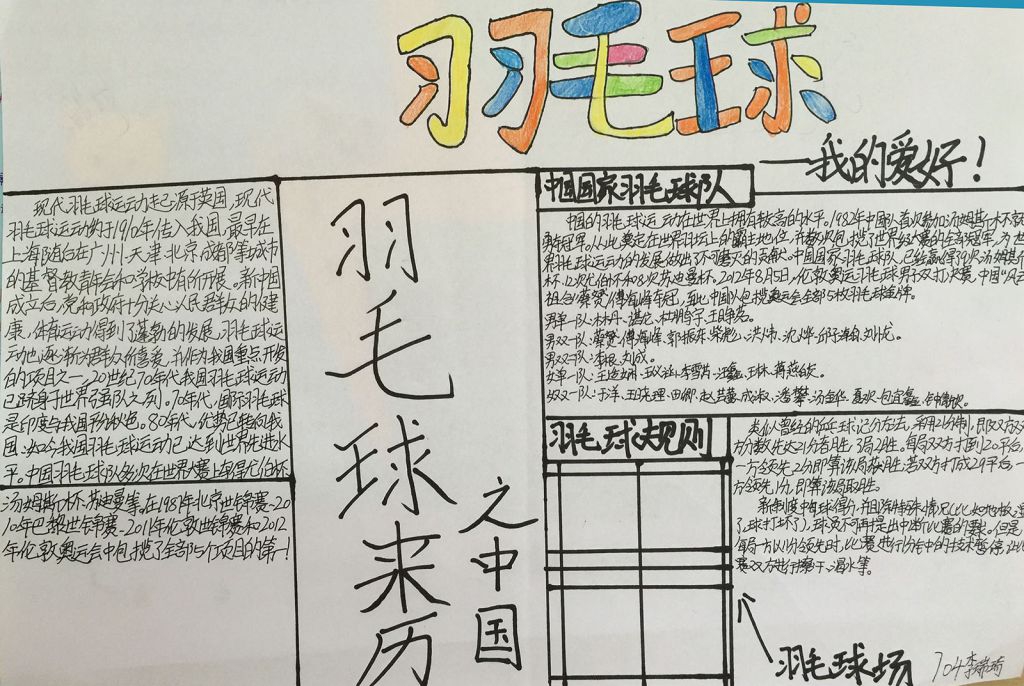 羽毛球
——我的爱好!
现代羽毛球运动起源于英国,现代
羽毛球运动约于1910年传入我国,最早在
上海随后在广州、天津、北京、成都等城市
的基督教青年会和学校中有所开展。新中国
成立后,党和政府十分关心人民群众的健
康,体育运动得到了蓬勃的发展,羽毛球运
动也逐渐为群众所喜爱,并作为我国重点开发
的项目之一,20世纪70年代我国羽毛球运动
已跻身于世界强队之列。70年代,国际羽毛球
是印度与我国平分秋色。80年代,优势已转向我
国,如今我国羽毛球运动已达到世界先进水
平。中国羽毛球队多次在世界大赛上夺得尤伯杯
汤姆斯杯、苏迪曼等,在1987年北京世锦赛、20
10年巴黎世锦赛、2011年伦敦世锦赛和2012
年伦敦奥运会中包揽了全部5个项目的第一!
羽毛球来历
之中国
中国国家羽毛球队
中国的羽毛球运动在世界上拥有较高的水平。1982年中国队首次参加汤姆斯杯
界羽毛球运动的发展做出了不可磨灭的贡献。中国国家羽毛球队,已经赢得
杯、12次尤伯杯和8次苏迪曼杯。2012年8月5日,伦敦奥运羽毛球男子双打决赛,中国
组合蔡赟/傅海峰夺冠,至此中国队包揽奥运会全部5枚羽毛球金牌。
男单一队:林丹、谌龙、杜鹏宇、王睁茗。
男双一队:蔡赟、傅海峰、郭振东、柴飚、洪炜、沈烨、邱子瀚、刘小龙。
男双二队:李根、刘成。
女单一队:王适娴、王仪涵、李雪芮、汪鑫、王琳、蒋燕皎。
女双一队:于洋、王晓理、田卿、赵芸蕾、成淑、潘攀、汤金华、夏欢、包宜鑫、钟倩欣。
羽毛球规则
类似曾经的乒乓球记分方法,采用21分制,即双方
分数先达21分者胜,3局2胜。每局双方打到20平后,
一方领先2分即算该局获胜;若双方打成29平后,一
方领先1分,即算该局取胜。
新制度中每球得分,并且除特殊情况(比如地板
了,球打坏了),球员不可再提出中断比赛的要求。但是,
每局一方以11分领先时,比赛进行1分钟的技术暂停,让比
赛双方进行擦汗、喝水等。
羽毛球场
704李